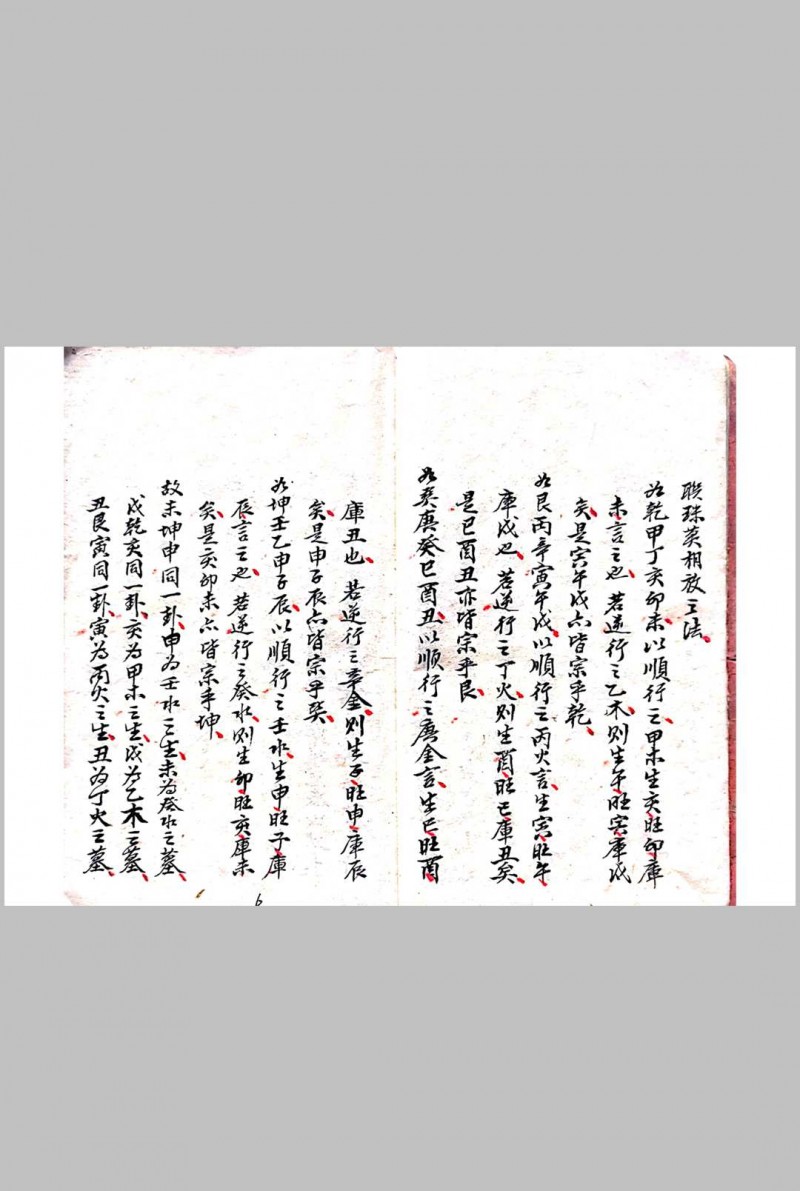 聯珠英相放之法
如乾甲丁亥卯未以順行之甲木生亥旺卯庫
未言之也若逆行之乙木則生午旺寅庫戌
矣是寅午戌六皆宗乎乾
如艮丙辛寅午戌以順行之丙火言生寅旺午
庫戌也若逆行之丁火則生酉旺巳庫丑矣
是巳酉丑亦皆宗乎艮
如巽庚癸巳酉丑以順行之庚金言生巳旺酉
庫丑也若逆行之辛金則生子旺申庫辰
矣是申子辰六皆宗乎巽
如坤壬乙申子辰以順行之壬水生申旺子庫
辰言之也若逆行之癸水則生卯旺亥庫未
矣是亥卯未六皆宗乎坤
故未坤申同一卦申為壬水之生未為癸水之墓
戌乾亥同一卦亥為甲木之生戌為乙木之墓
丑艮寅同一卦寅為丙火之生丑為丁火之墓
6